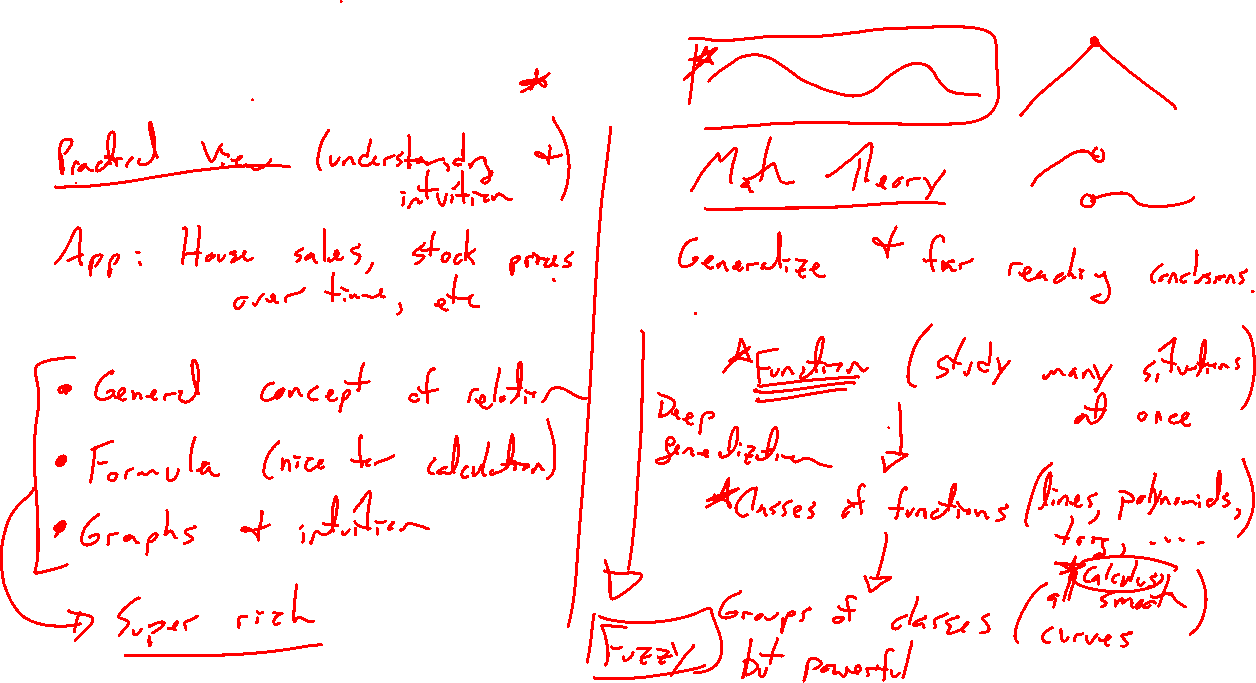 Practical View (understanding &
intuition)
App: House sales, stock prices
over time, etc
• General concept of relation
• Formula (nice for calculation)
• Graphs & intuition
Super rich
Math Theory
Generalize & far reaching conclusions.
Function (study many situations
at once)
Deep
generalization
Classes of functions (lines, polynomials,
trig, ....)
Calculus
Groups of classes (all smooth
curves)
but powerful
Fuzzy